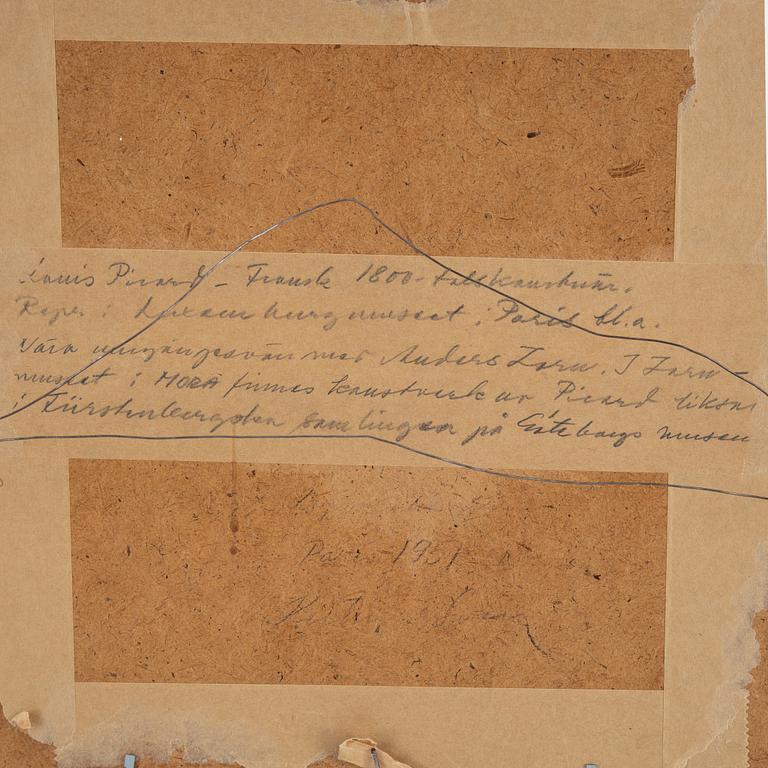 Louis Picard – Fransk 1800-talskonstnär.
Repr. i Luxembourgmuseet i Paris bl.a.
Vära umgängesvän med Anders Zorn. I Zorn-
museet i MORA finnes konstverk av Picard liksom
i Fürstenbergska samlingen på Göteborgs museum
Paris 1951